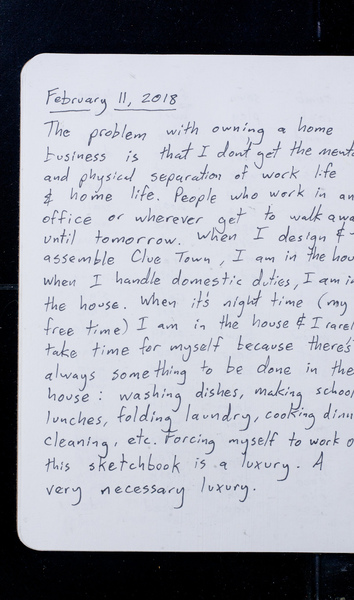 February 11, 2018
The problem with owning a home
business is that I don't get the menta
and physical separation of work life
& home life. People who work in an
office or wherever get to walk awa
until tomorrow. When I design &
assemble Clue Town, I am in the hou
when I handle domestic duties, I am in
the house. When it's night time (my
free time) I am in the house & I rarel
take time for myself because there's
always something to be done in the
house: washing dishes, making school
lunches, folding laundry, cooking dinn
cleaning, etc. Forcing myself to work o
this sketchbook is a luxury. A
very necessary luxury.